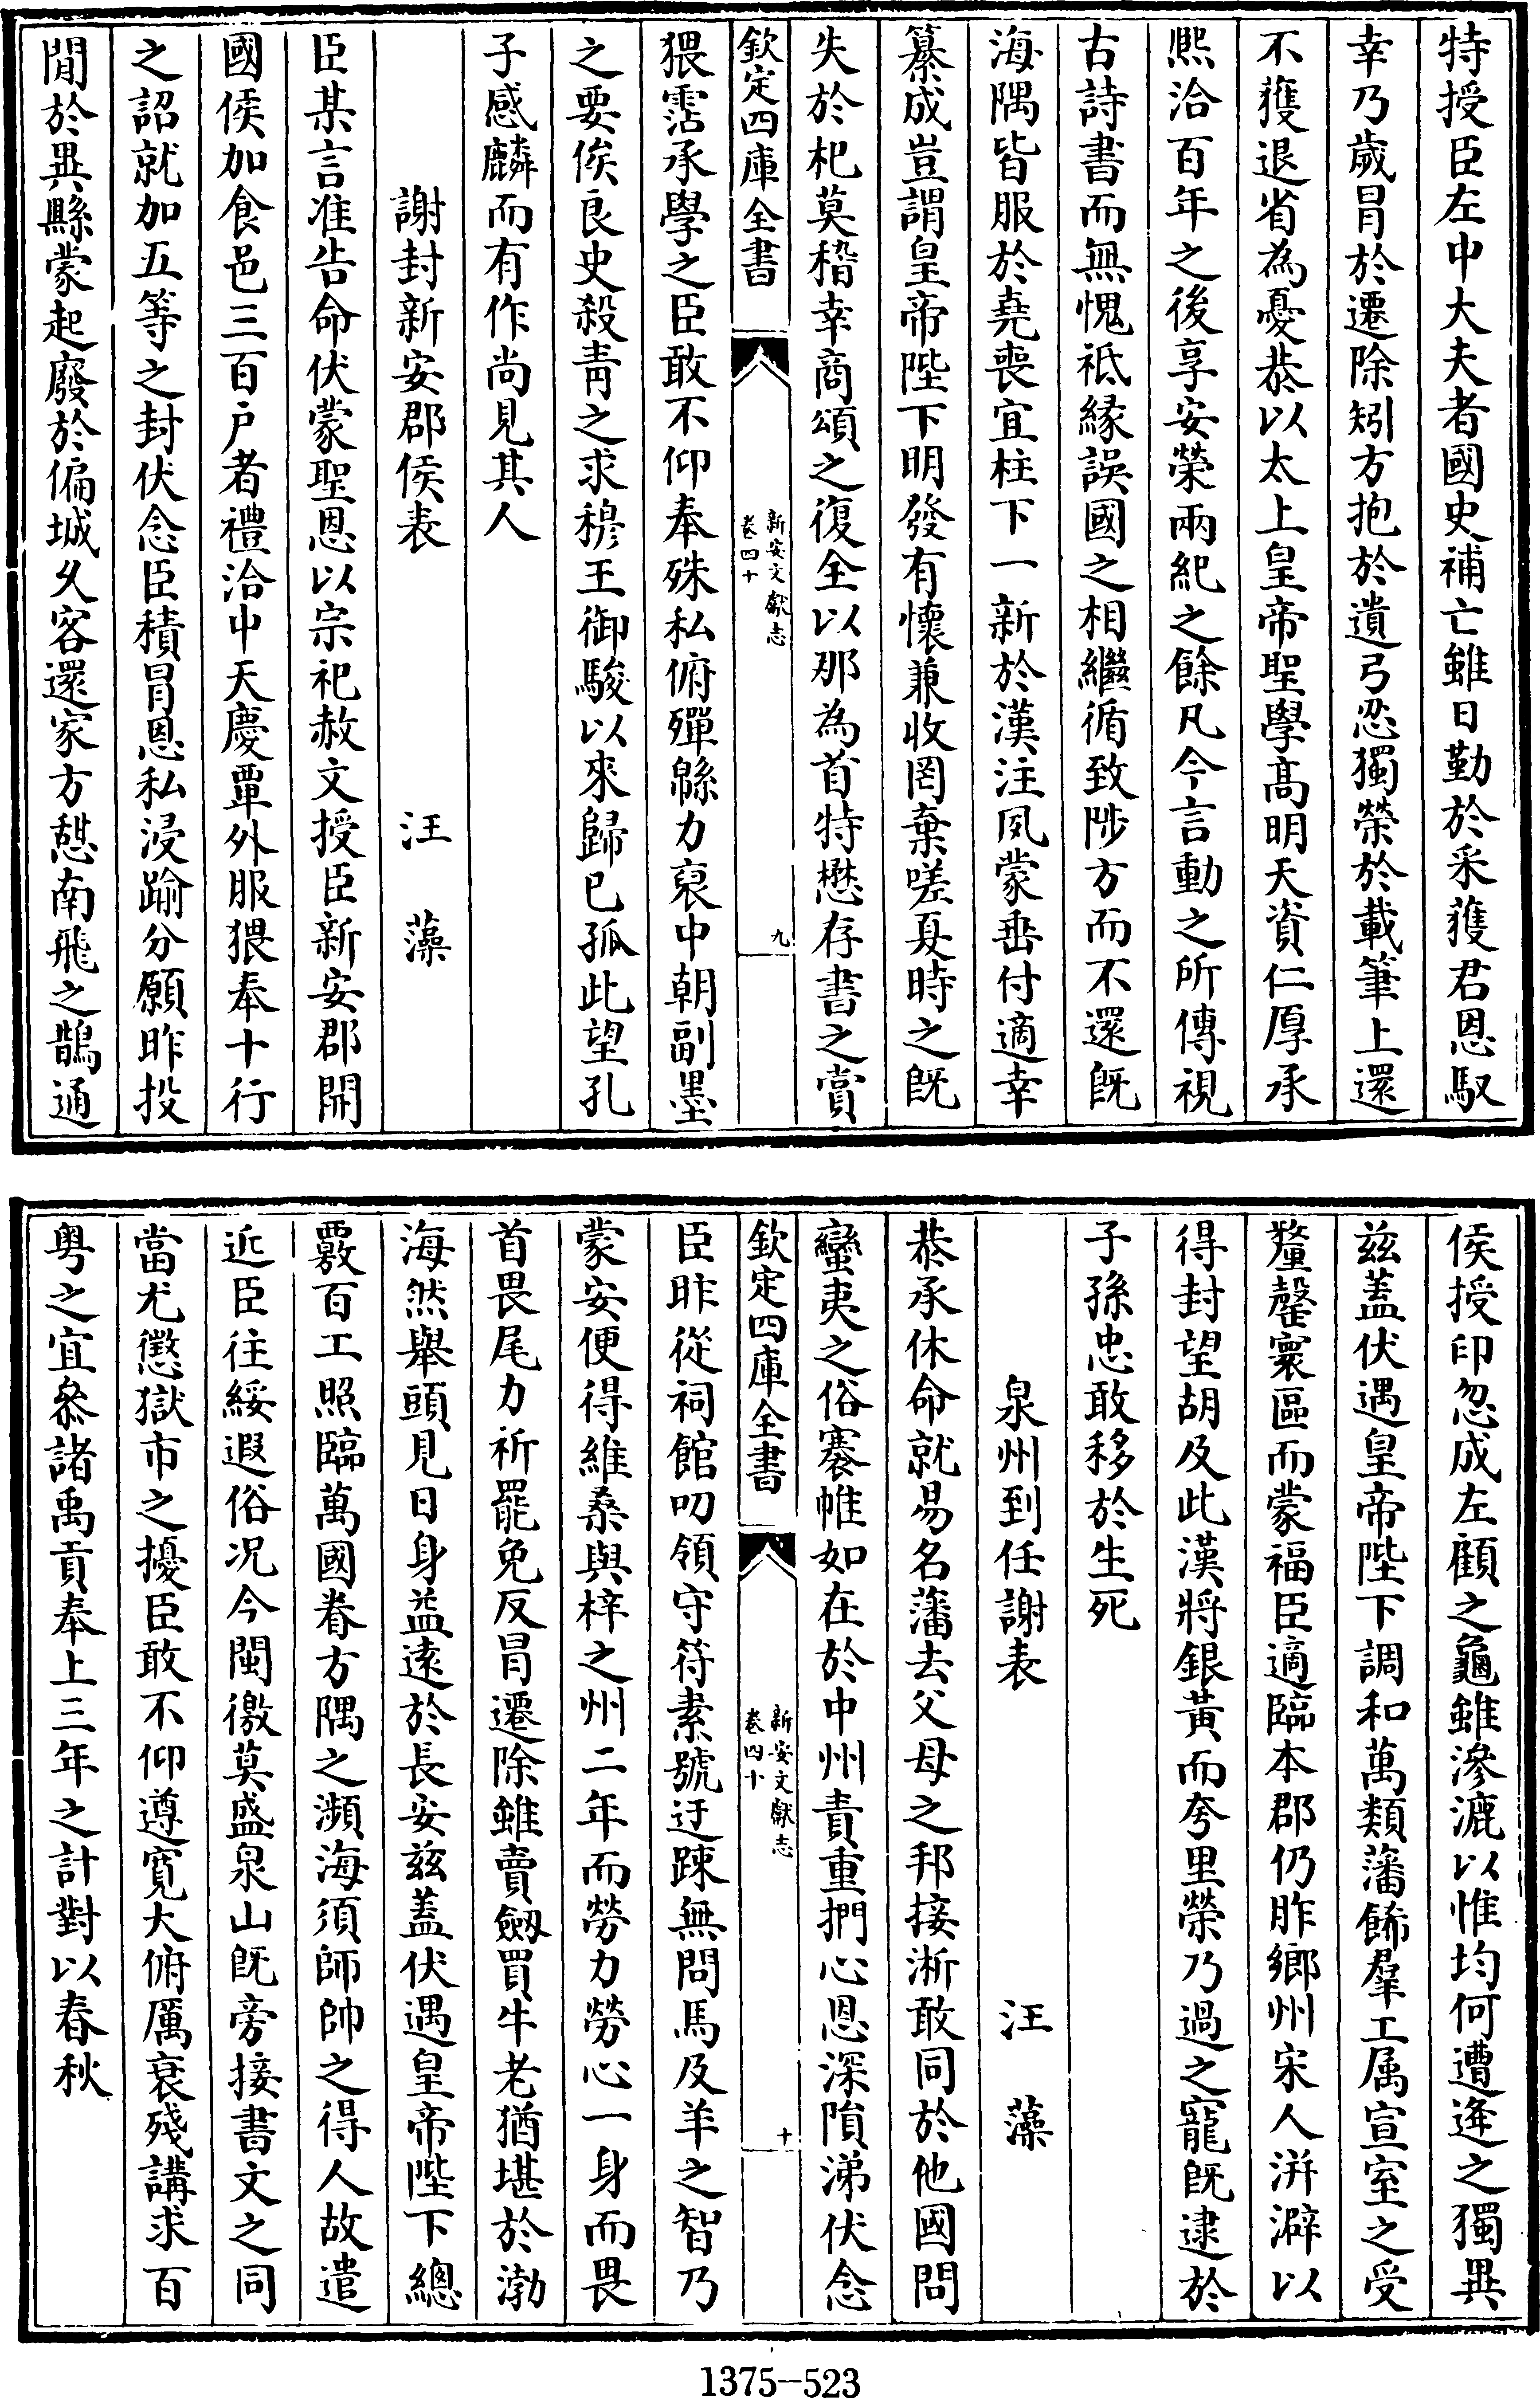 特授臣左中大夫者國史補亡雖日勤於采獲君恩馭
幸乃歲冒於遷除矧方抱於遺弓忍獨榮於載筆上還
不獲退省為憂恭以太上皇帝聖學髙明天資仁厚承
熈洽百年之後享安榮兩紀之餘凡今言動之所傳視
古詩書而無愧祗緣誤國之相繼循致陟方而不還旣
海隅皆服於堯喪宜柱下一新於漢注夙蒙垂付適幸
纂成豈謂皇帝陛下明發有懷兼收罔棄嗟夏時之旣
失於杞莫稽幸商頌之復全以那為首特懋存書之賞
欽定四庫全書
新安文獻志
卷四十
九
猥霑承學之臣敢不仰奉殊私俯殫緜力裒中朝副墨
之要俟良史殺青之求穆王御駿以來歸已孤此望孔
子感麟而有作尚見其人
謝封新安郡侯表 汪藻
臣某言准告命伏蒙聖恩以宗祀赦文授臣新安郡開
國侯加食邑三百户者禮洽中天慶覃外服猥奉十行
之詔就加五等之封伏念臣積冒恩私浸踰分願昨投
閒於異縣蒙起廢於偏城乆客還家方憇南飛之鵲通
侯授印忽成左顧之龜雖滲漉以惟均何遭逄之獨異
兹蓋伏遇皇帝陛下調和萬類藩飾羣工属宣室之受
釐罄寰區而蒙福臣適臨本郡仍胙鄉州宋人洴澼以
得封望胡及此漢將銀黃而夸里榮乃過之寵旣逮於
子孫忠敢移於生死
泉州到任謝表 汪藻
恭承休命就易名藩去父母之邦接淅敢同於他國問
蠻夷之俗褰帷如在於中州責重捫心恩深隕涕伏念
欽定四庫全書
新安文獻志
卷四十
十
臣昨從祠館叨領守符素號迂踈無問馬及羊之智乃
蒙安便得維桑與梓之州二年而勞力勞心一身而畏
首畏尾力祈罷免反冒遷除雖賣劔買牛老猶堪於渤
海然舉頭見日身益逺於長安兹蓋伏遇皇帝陛下總
覈百工照臨萬國眷方隅之瀕海須師帥之得人故遣
近臣往綏遐俗况今閩徼莫盛泉山旣旁接書文之同
當尤懲獄市之擾臣敢不仰遵寛大俯厲衰殘講求百
粤之宜叅諸禹貢奉上三年之計對以春秋
1375-523